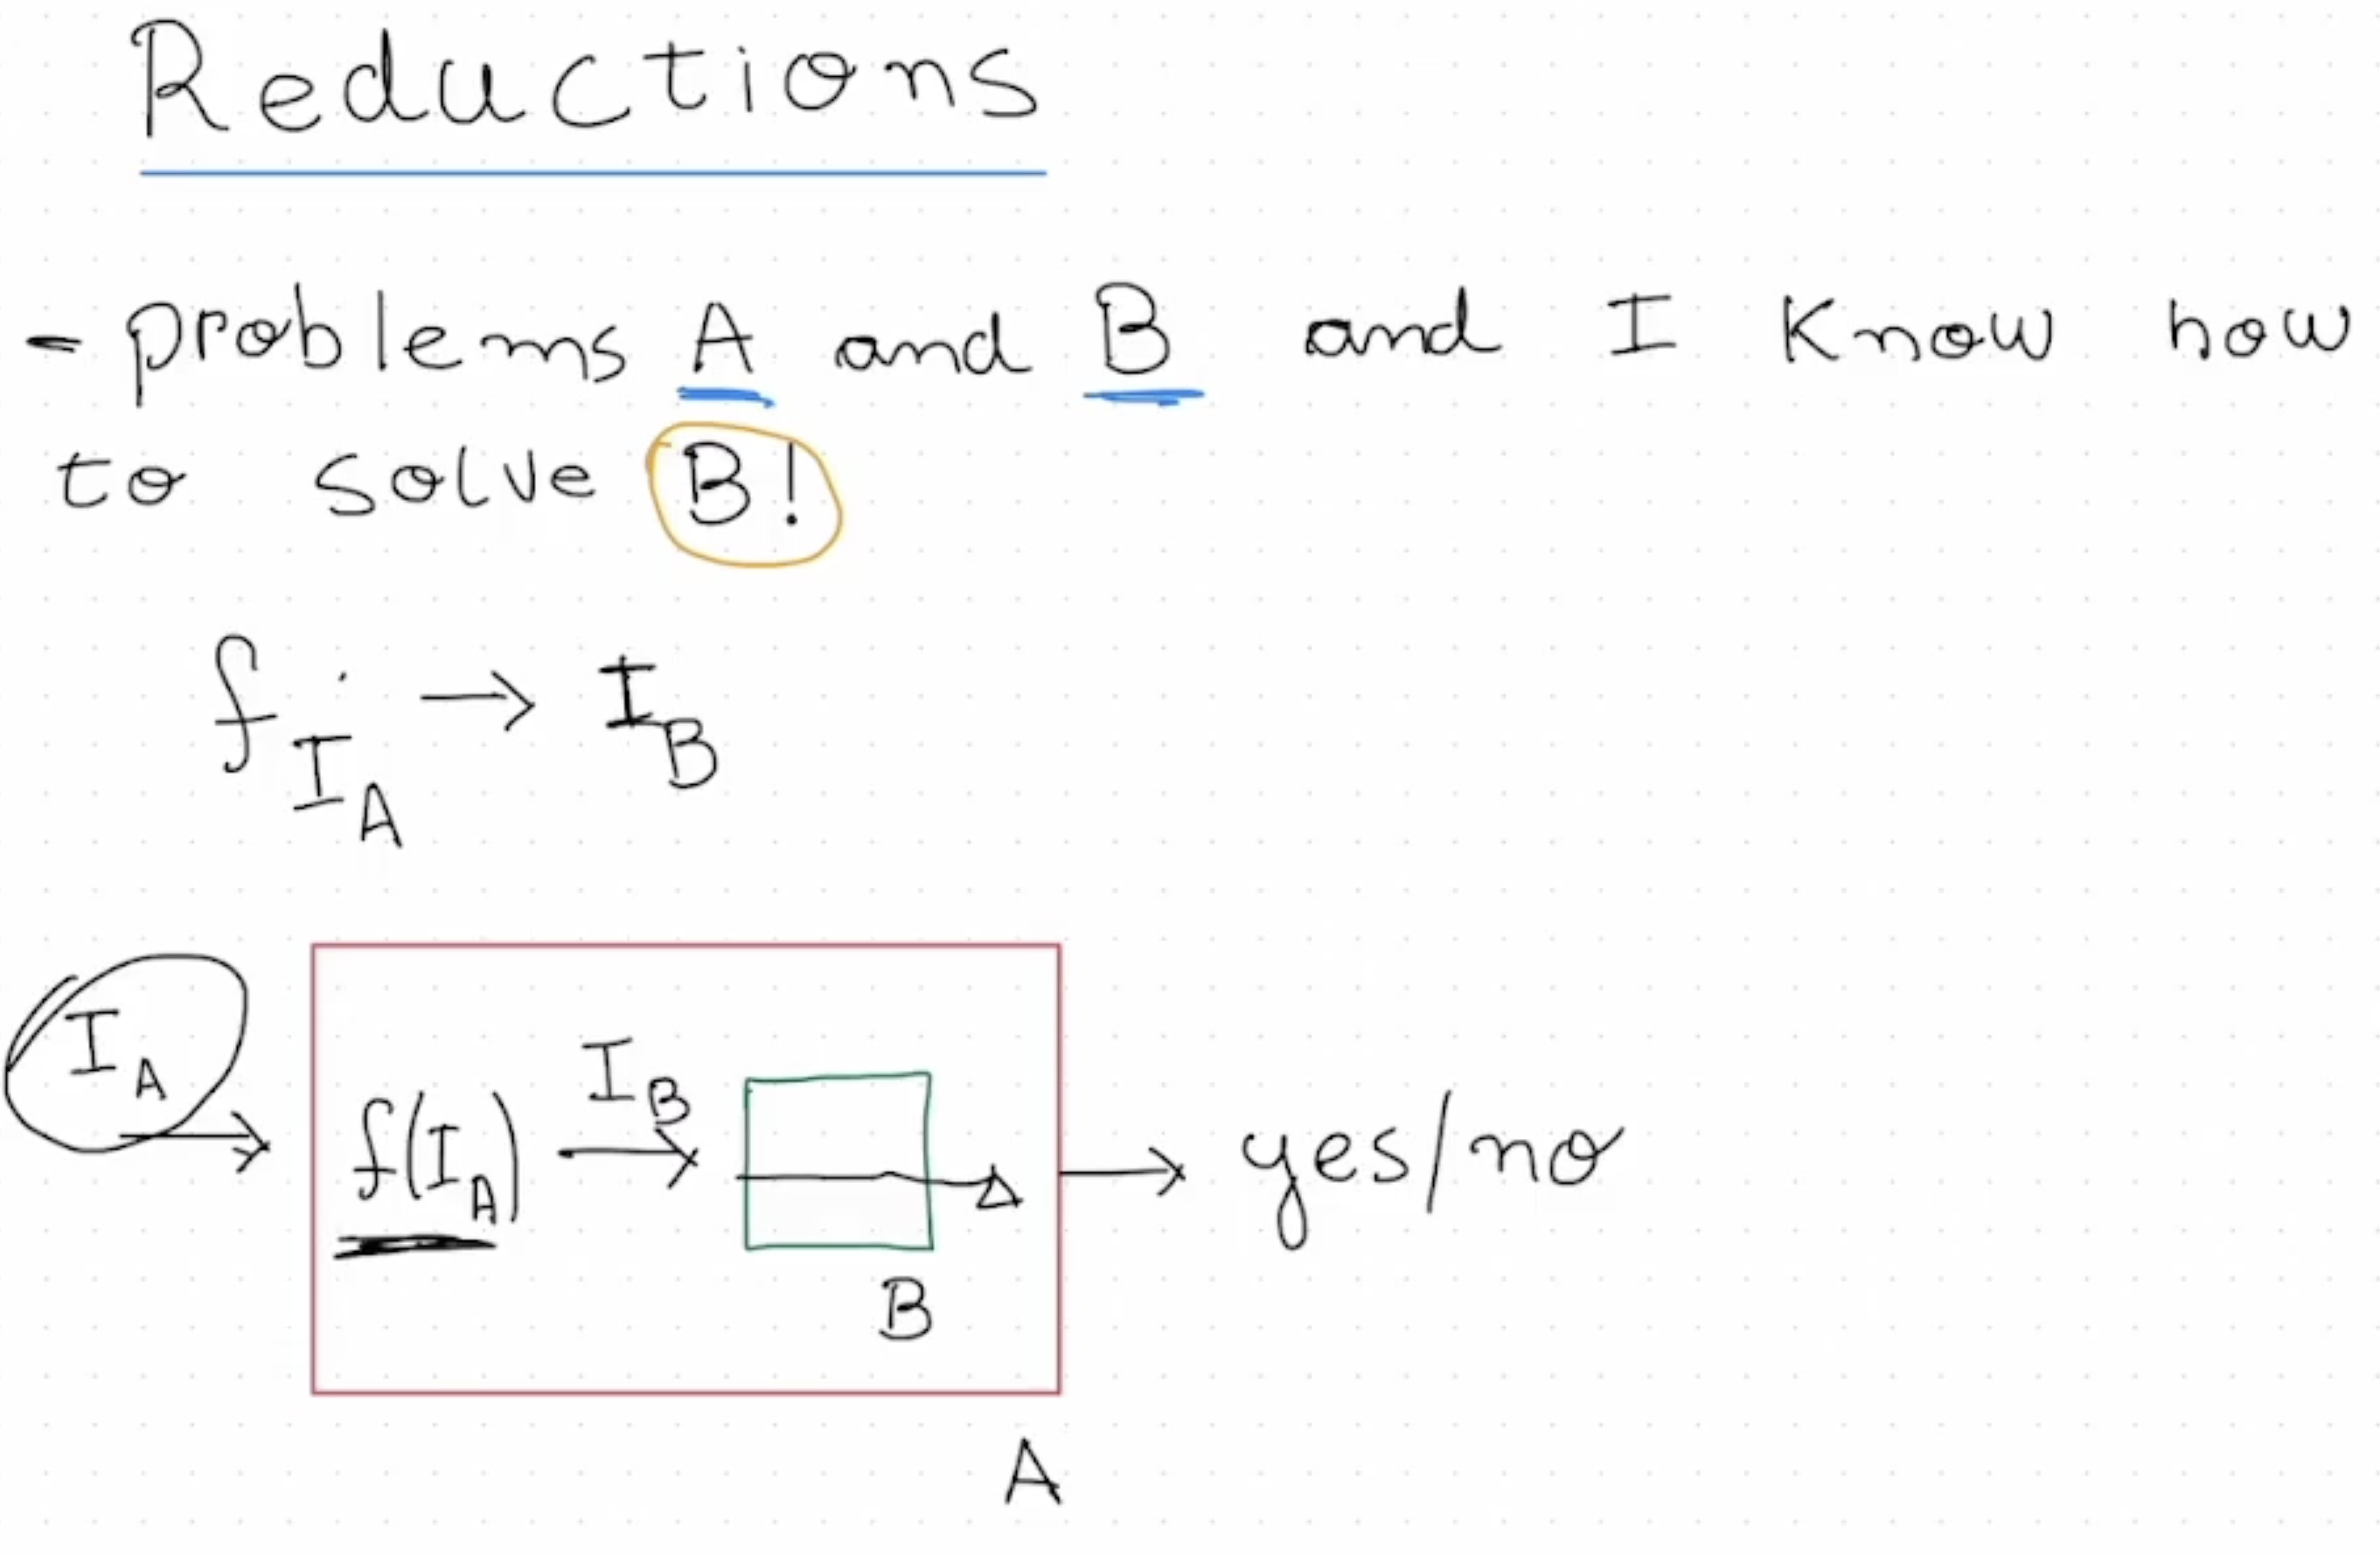 Reductions
- problems A and B and I know how
to solve B!
f I_A → I_B
I_A → f(I_A) I_B → → yes/no
B
A